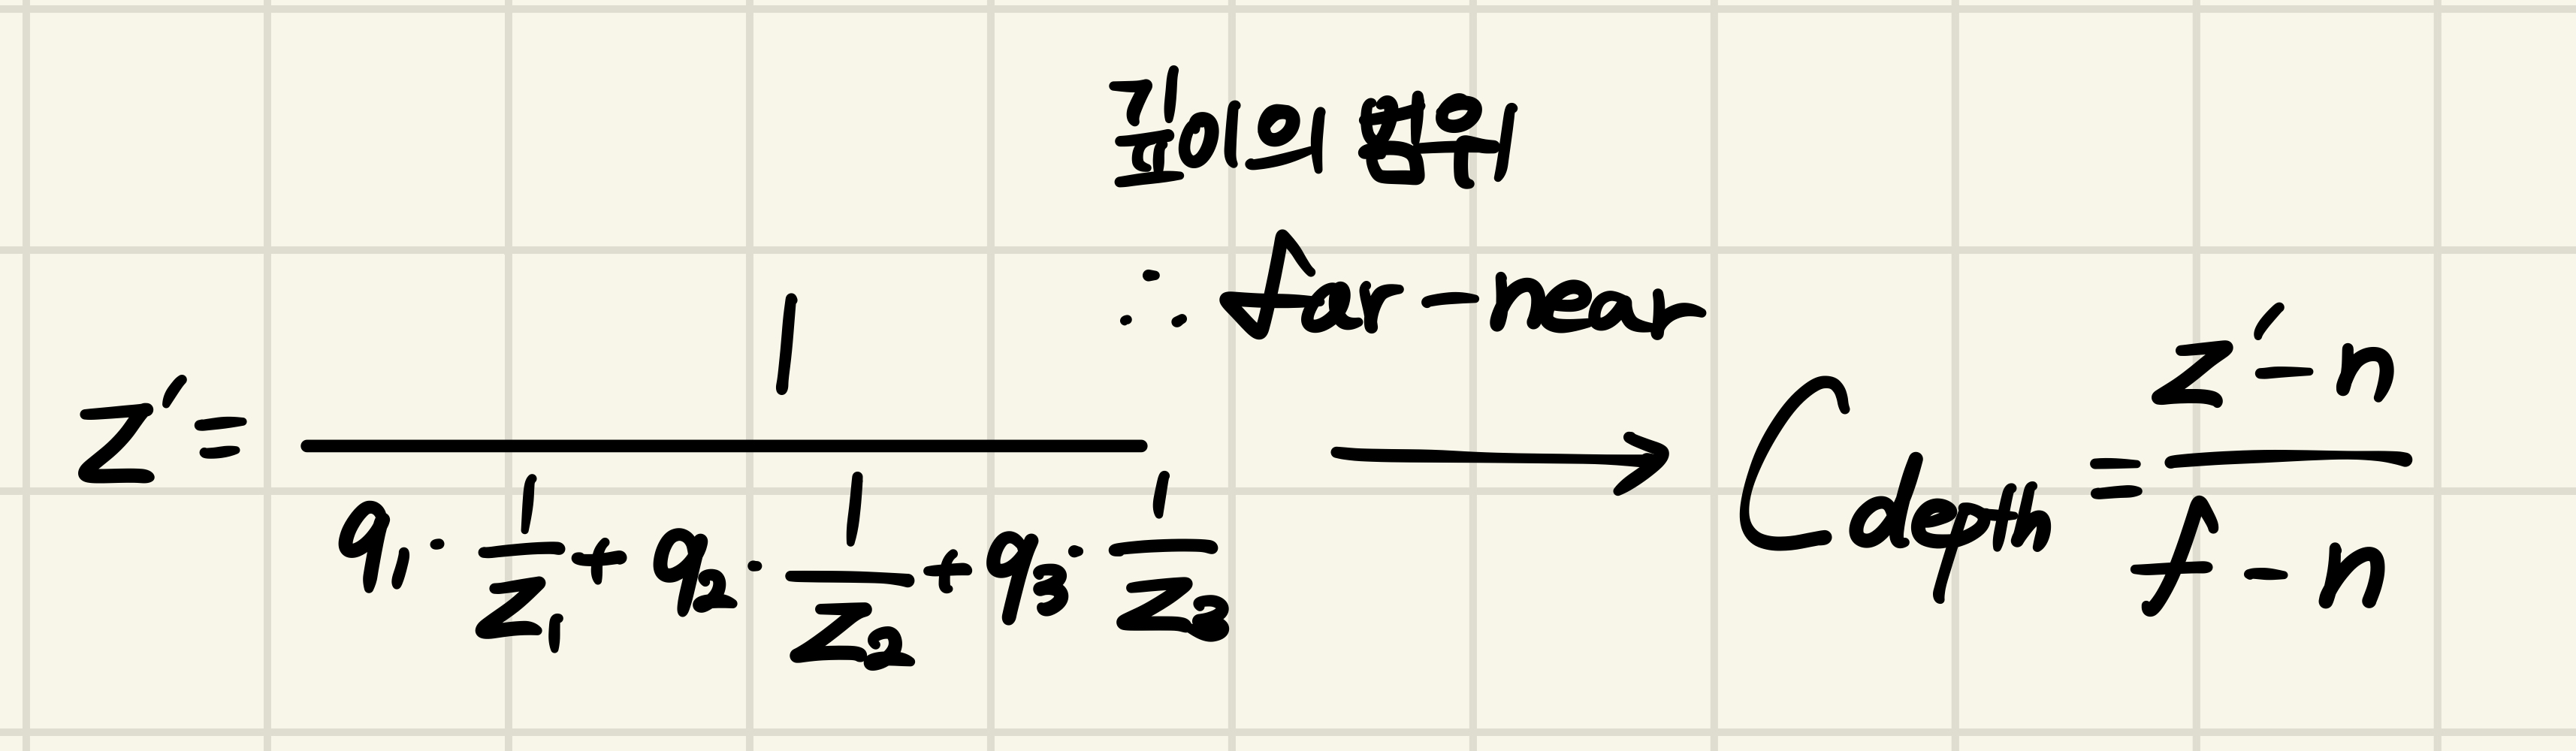 깊이의 범위
∴ far - near
z' = 1 / (q₁ · 1/z₁ + q₂ · 1/z₂ + q₃ · 1/z₃) → C depth = (z' - n) / (f - n)